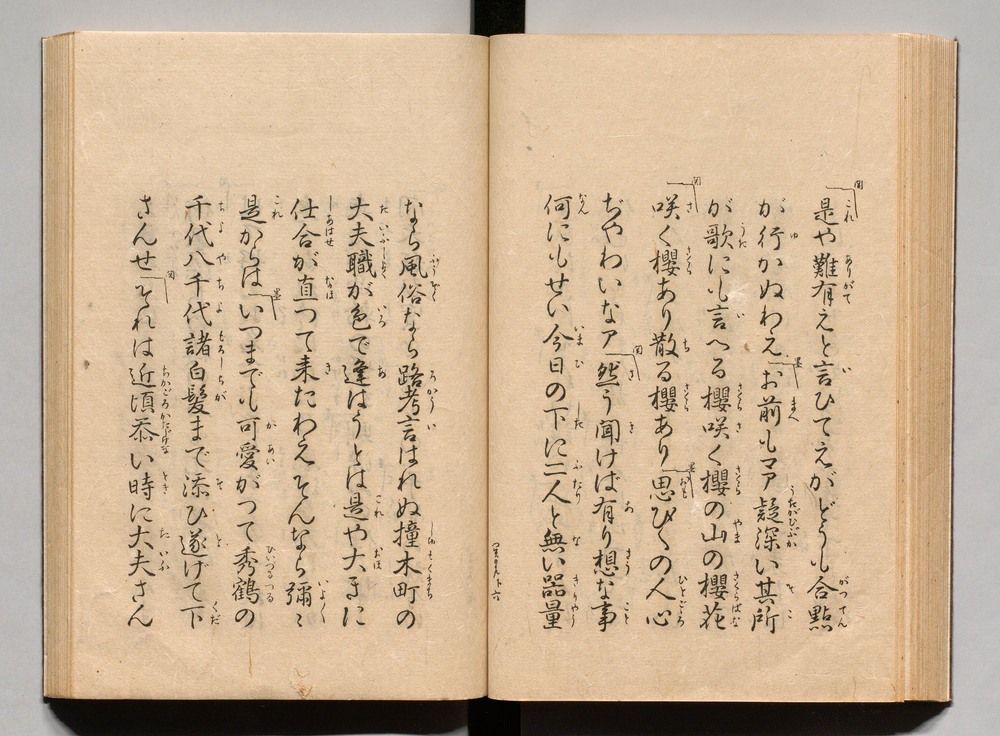 是や難有えと言ひてえがどうも合點
が行かぬわえお前もマア疑深い其所
が歌にも言へる櫻咲く櫻の山の櫻花
咲く櫻あり散る櫻あり思ひ〱の人心
ぢやわいなア然う聞けば有り想な事
何にもせい今日の下に二人と無い器量
なら風俗なら路考言はれぬ撞木町の
大夫職が色で逢はうとは是や大きに
仕合が直つて来たわえそんなら彌〻
是からはいつまでも可愛がつて秀鶴の
千代八千代諸白髪まで添ひ遂げて下
さんせそれは近頃忝い時に大夫さん